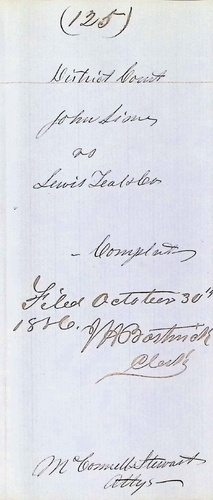 (125)
District Court
John Sims
vs
Lewis Teal & Co
- Complaint
Filed October 30th
1856.
Clerk
McConnell & Stewart
Attys